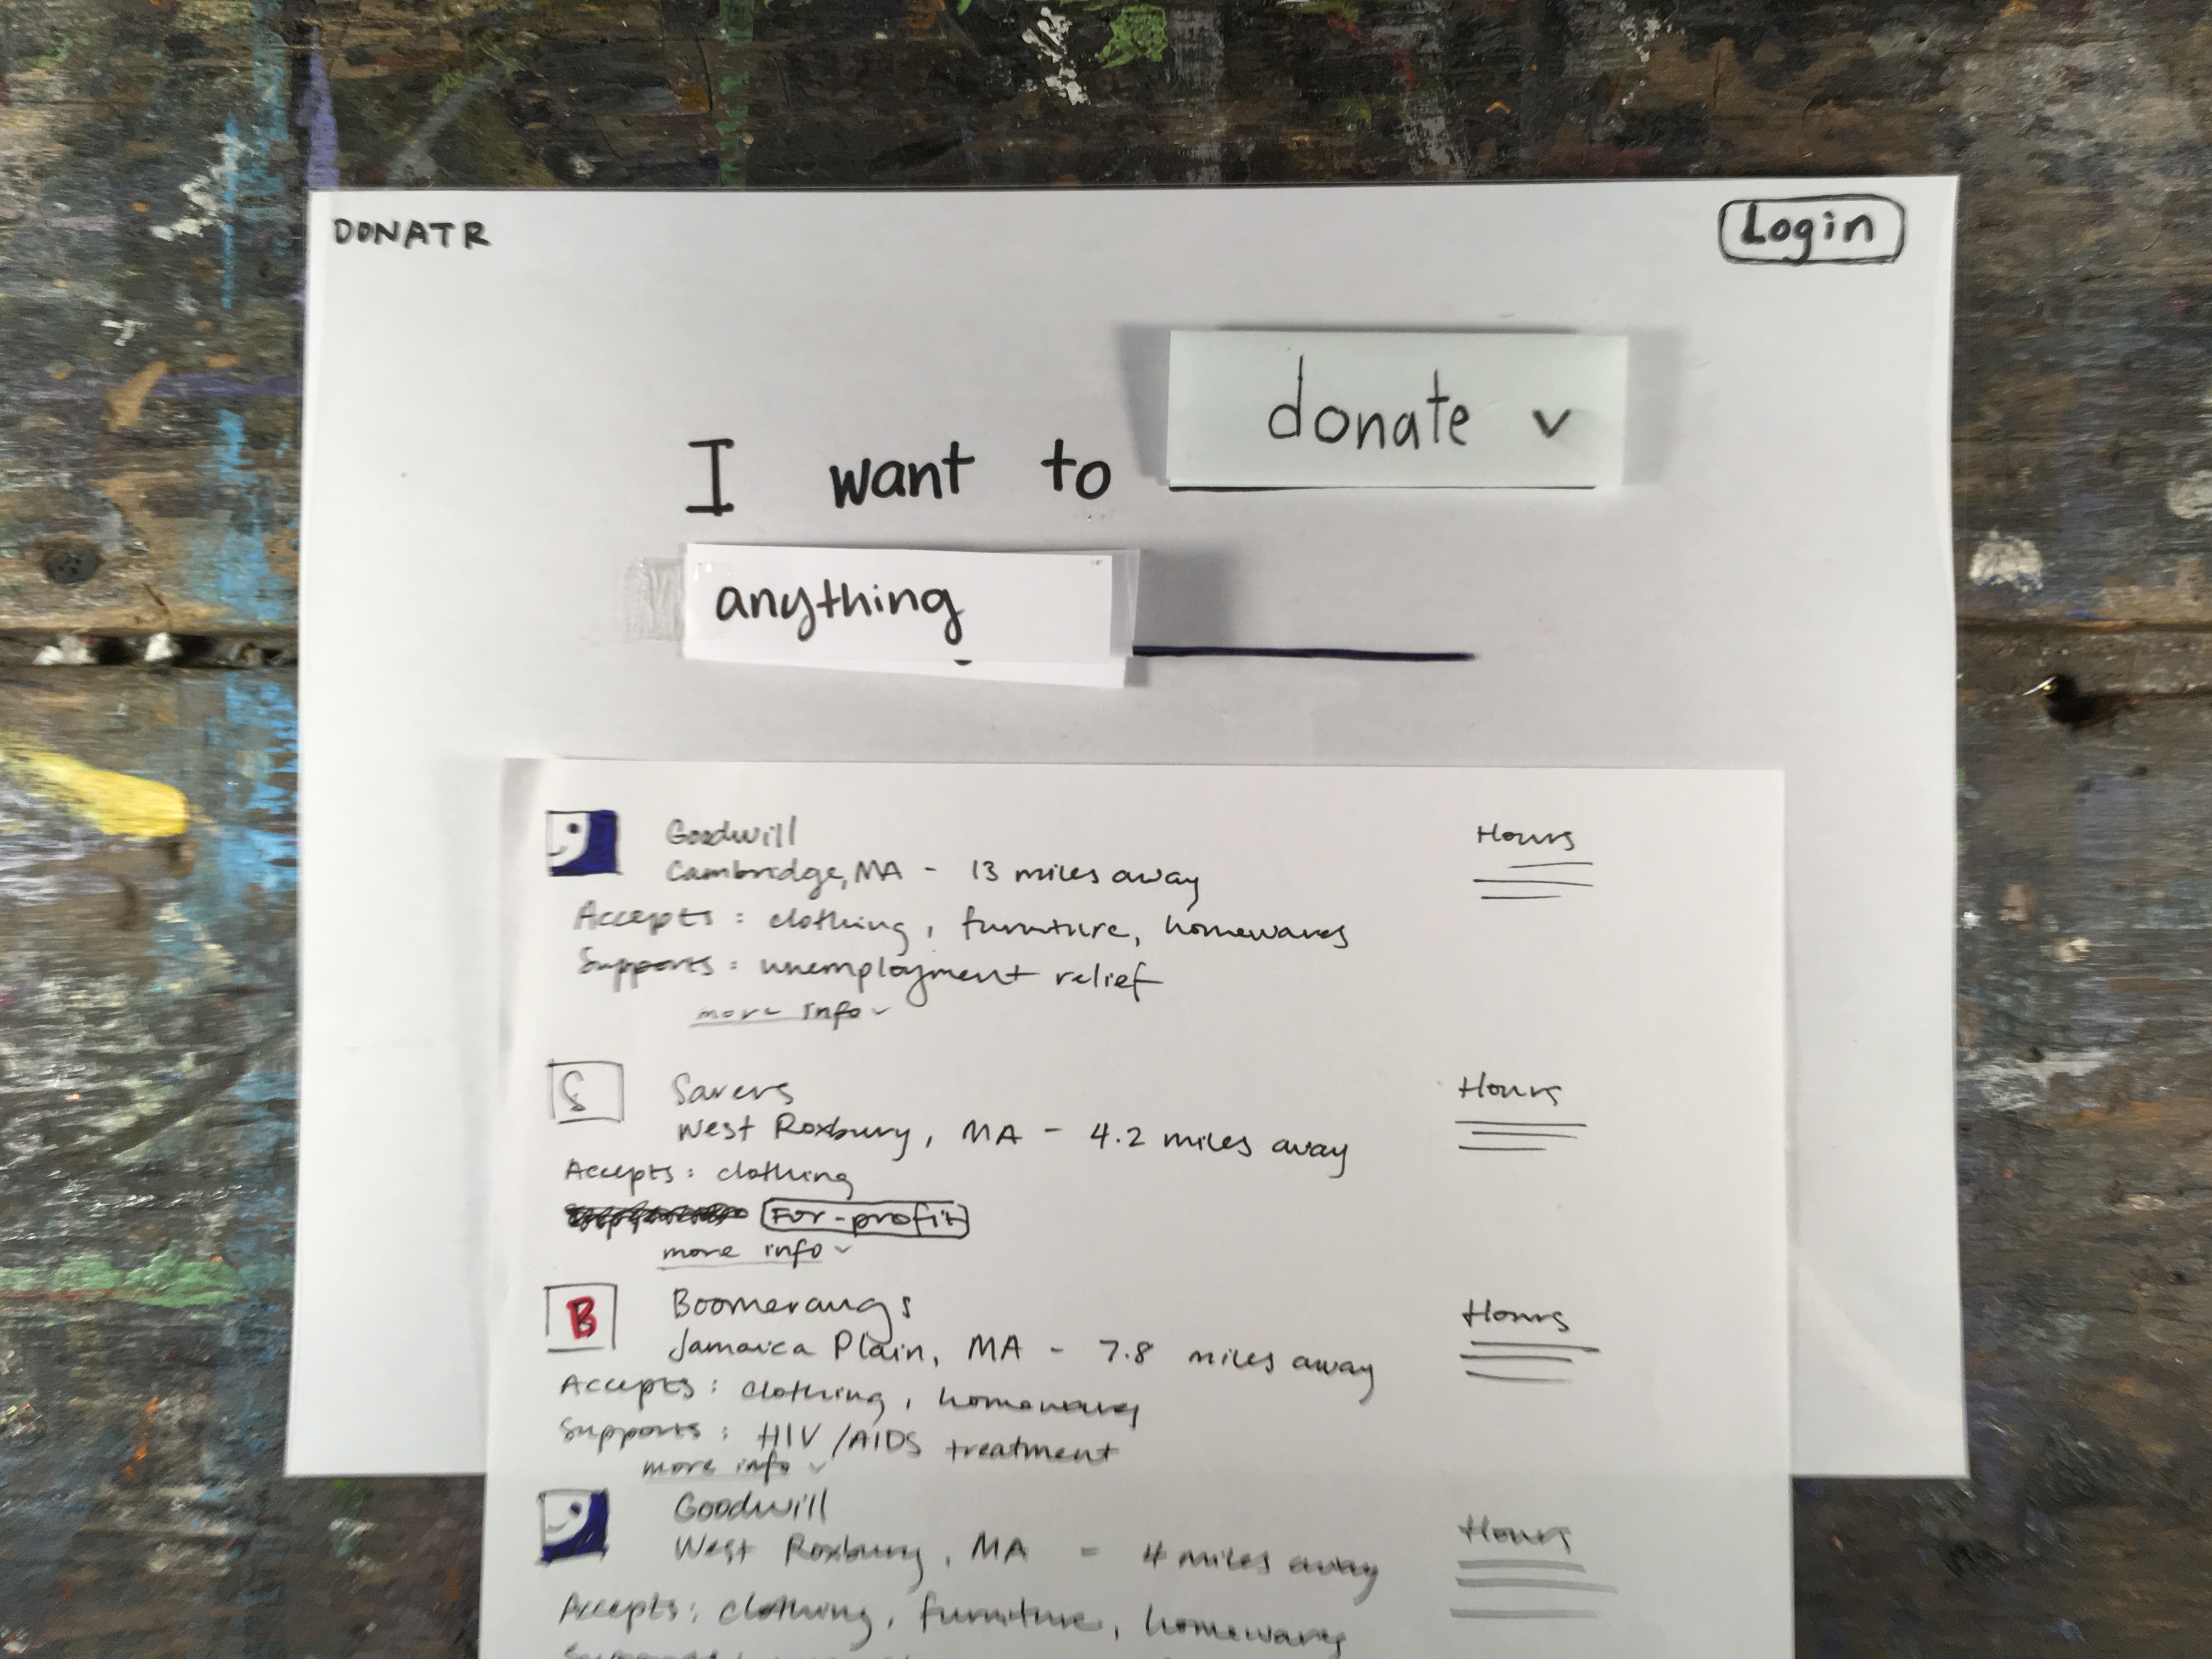 DONATR
Login
I want to donate v
anything
Goodwill
Cambridge, MA - 13 miles away
Accepts: clothing, furniture, homewares
Supports: unemployment relief
more info
Hours
S
Savers
West Roxbury, MA - 4.2 miles away
Accepts: clothing
For-profit
more info
Hours
B
Boomerangs
Jamaica Plain, MA - 7.8 miles away
Accepts: clothing, homewares
Supports: HIV/AIDS treatment
more info
Hours
Goodwill
West Roxbury, MA - 4 miles away
Accepts: clothing, furniture, homewares
Hours